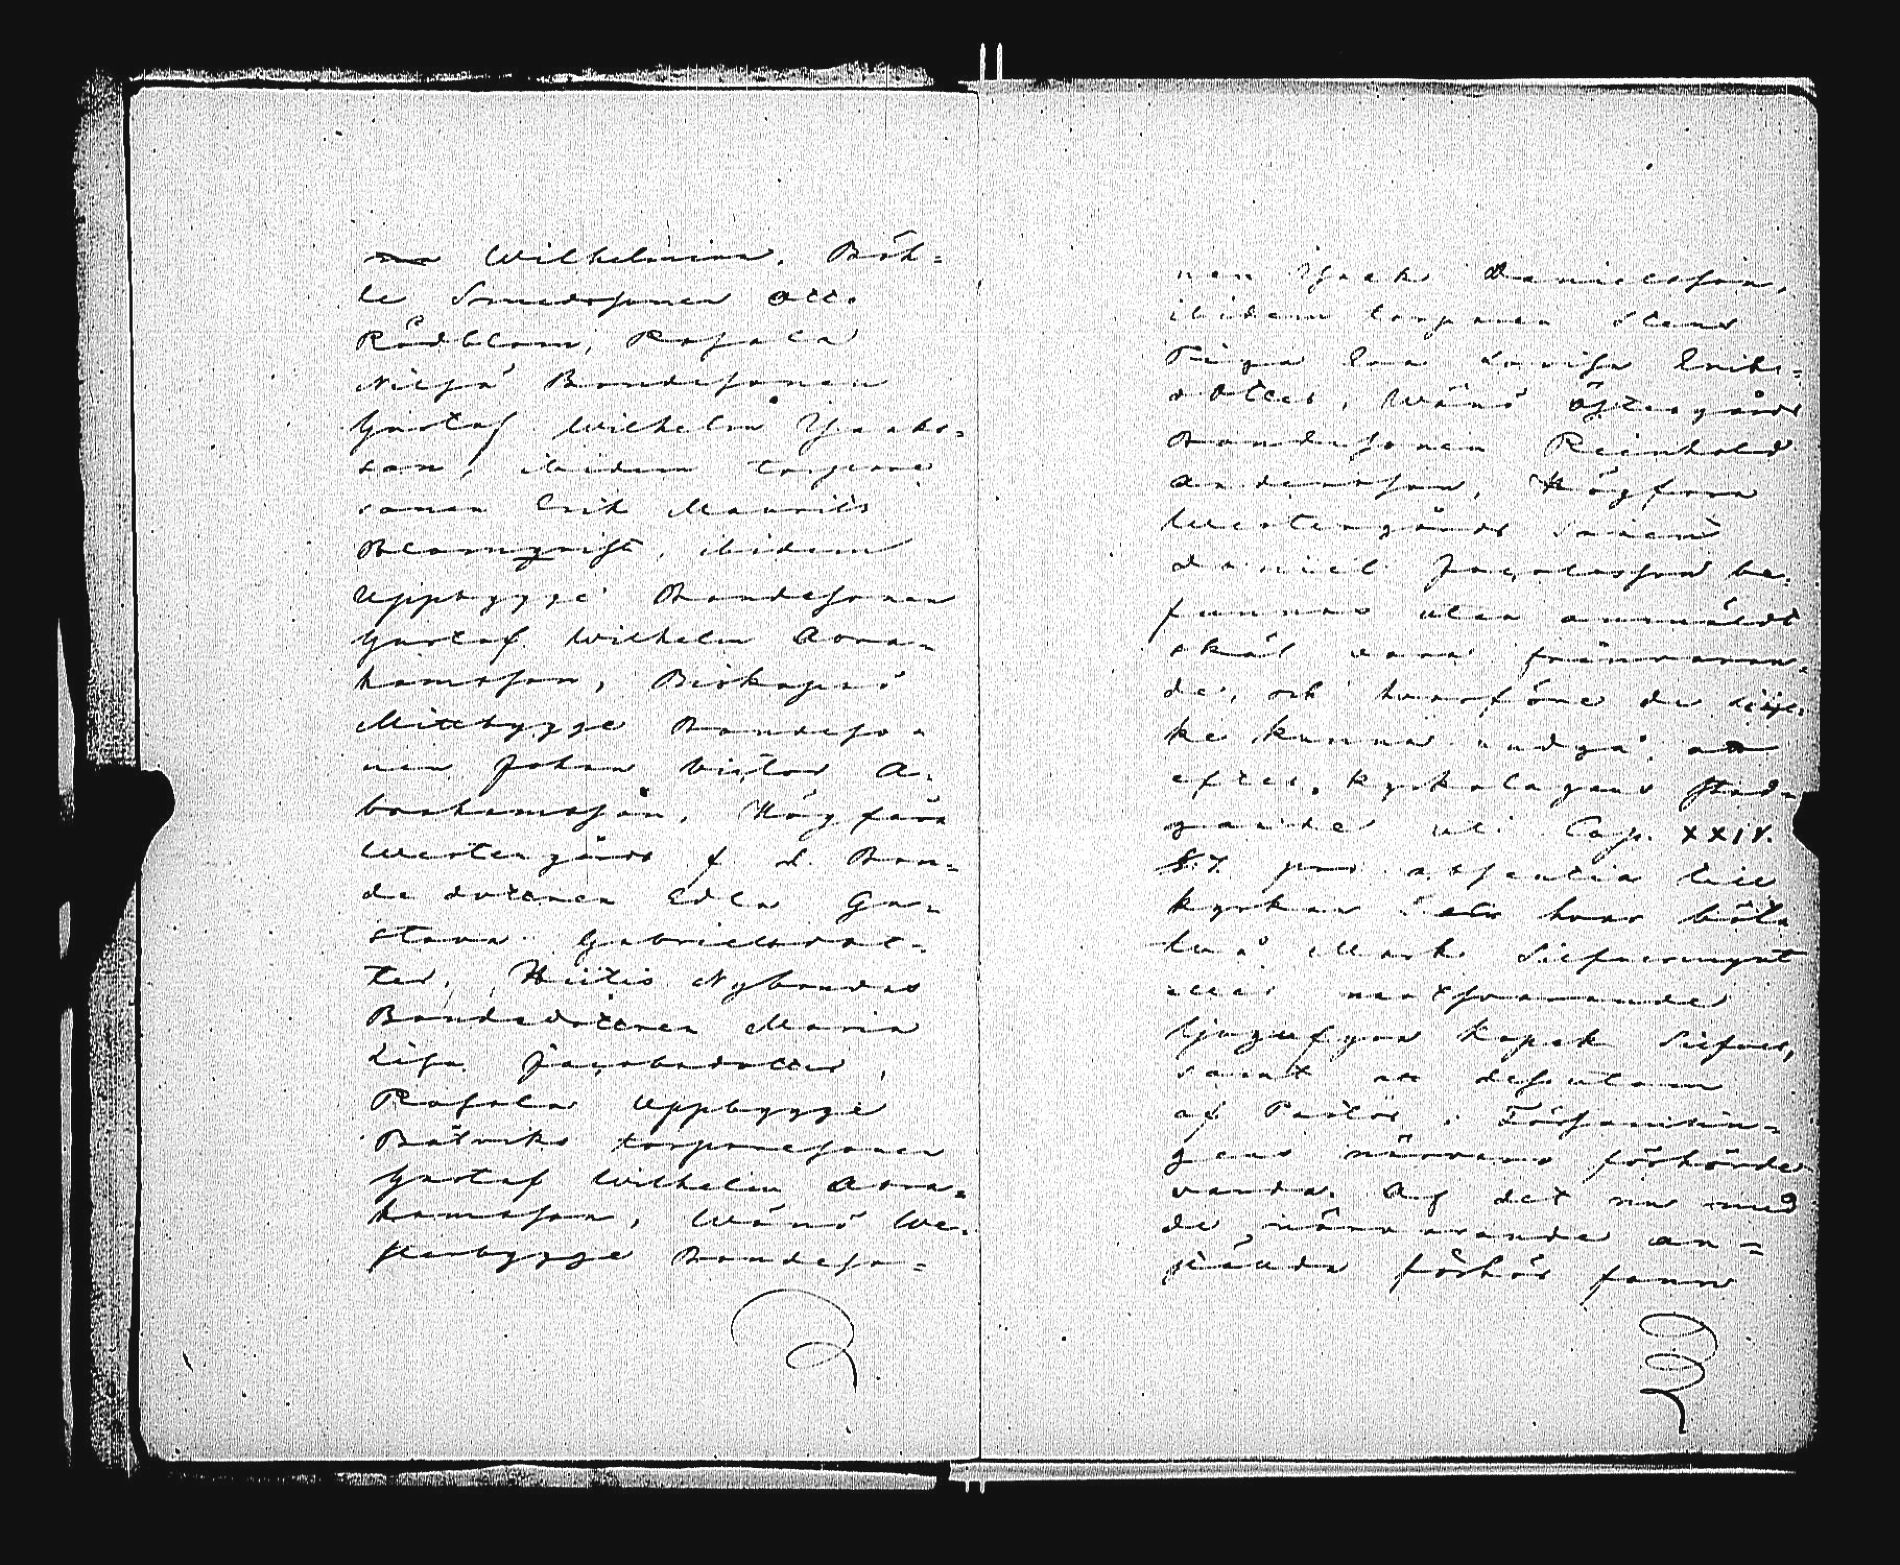 Wilhelmina, Böh=
le Smedssonen Otto
Rådblom, Rosala
Nilsä Bondesonen
Gustaf Wilhelm Isaks=
son, ibidem torpare
sonen Erik Mauritz
Blomqvist, ibidem
Uppbygge Bondesonen
Gustaf Wilhelm Abra=
hamsson, Biskopsö
Mittbygge Bondeso=
nen Johan Victor A=
brahamsson, Högsåra
Westergårds f. d. Bon=
de dotteren Edla Gu=
stava Gabrielsdot=
ter, Hiitis Nybondas
Bondedotteren Maria
Lisa Jacobsdotter,
Rosala Uppbygge
Båtviks torparesonen
Gustaf Wilhelm Abra=
hamsson, Wänö We=
sterbygge Bondeso=
nen Isak Danielsson,
ibidem torparen Stens
Piga Eva Lovisa Eriks=
dotter, Wänö Östergårds
Bondesonen Reinhold
Andersson, Högsåra
Westergårds
Daniel Jacobsson be=
funnos utan anmäldt
skäl vara frånvaran=
de, och hvarföre de
ke kunna undgå att
efter Kyrkolagens stad=
gande uti Cap. XXIV.
§.7. pro absentia till
kyrkan hvar böta
två Mark Silfvermynt
eller motsvarande
tjugufyra kopek Silfver,
samt att dessutom
af Pastor i Församlin=
gens närvaro förhörde
varda. Af det nu med
de närvarande an=
stälda förhör fann